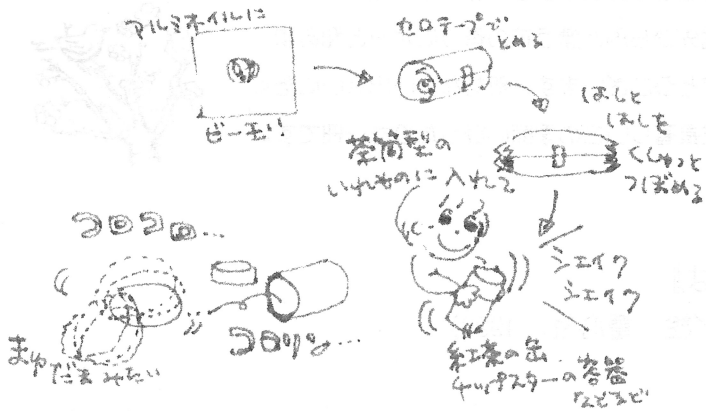 アルミホイルに
ビー玉!!
セロテープで
とめる
はしと
はしを
くしゅっと
つぼめる
茶筒型の
いれものに入れて
シェイク
シェイク
紅茶の缶
チップスターの容器
などなど
コロコロ...
コロリン...
まゆ
だまみたい